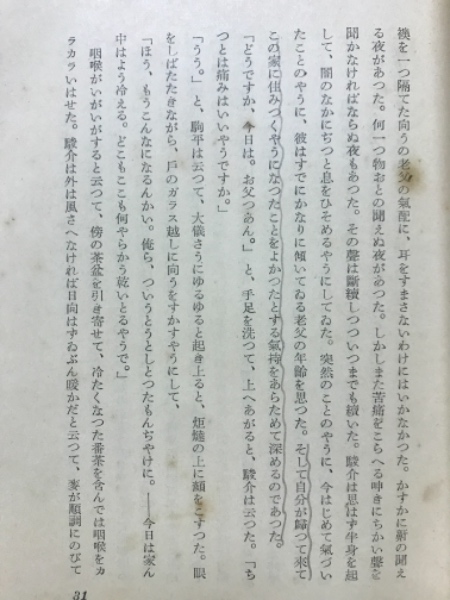 襖を一つ隔てた向うの老父の氣配に、耳をすまさないわけにはいかなかつた。かすかに鼾の聞え
る夜があつた。何一つ物おとの聞えぬ夜があつた。しかしまた苦痛をこらへる呻きにちかい聲を
聞かなければならぬ夜もあつた。その聲は斷續しつついつまでも續いた。駿介は思はず半身を起
して、闇のなかにぢつと息をひそめるやうにしてゐた。突然のことのやうに、今はじめて氣づい
たことのやうに、彼はすでにかなりに傾いてゐる老父の年齡を思つた。そして自分が歸つて來て
この家に住みつくやうになつたことをよかつたとする氣持をあらためて深めるのであつた。
「どうですか、今日は。お父つあん。」と、手足を洗つて、上へあがると、駿介は云つた。「ち
つとは痛みはいいやうですか。」
「うう。」と、駒平は云つて、大儀さうにゆるゆると起き上ると、炬燵の上に顏をこすつた。眼
をしばたたきながら、戸のガラス越しに向うをすかすやうにして、
「ほう、もうこんなになるんかい。俺ら、ついうとうとしとつたもんぢやけに。――今日は家ん
中はよう冷える。どこもここも何やらかう乾いとるやうで。」
咽喉がいがいがすると云つて、傍の茶盆を引き寄せて、冷たくなつた番茶を含んでは咽喉をカ
ラカラいはせた。駿介は外は風さへなければ日向はずゐぶん暖かだと云つて、麥が順調にのびて
31